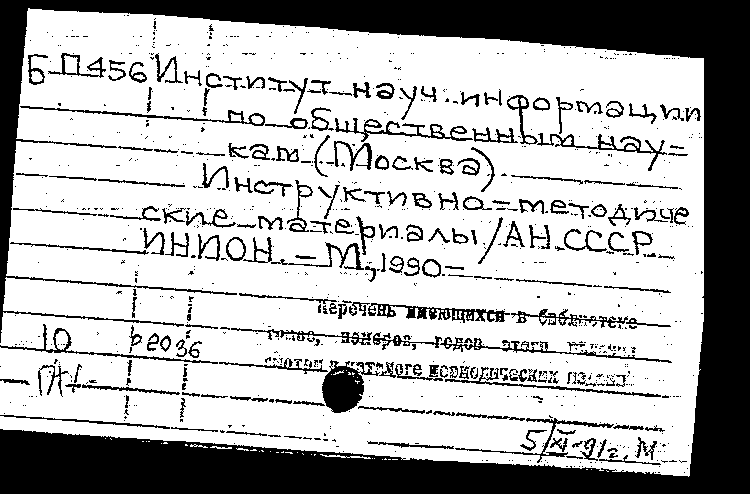 Б П456 Институт науч. информации
по общественным нау-
кам (Москва).
Инструктивно-методиче
ские материалы / АН СССР
ИНИОН. - М., 1990-
Перечень имеющихся в библиотеке
томов, номеров, годов этого издания
смотри в каталоге периодических издан
10
5/XI-91г. М